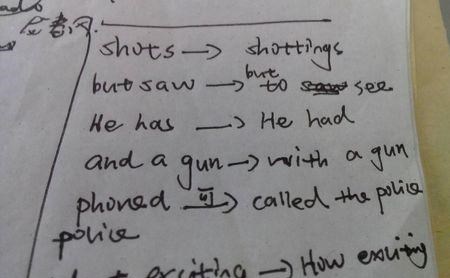 shots → shottings
but saw → but to see
He has → He had
and a gun → with a gun
phoned 可→ called the police
police
exciting → How exciting